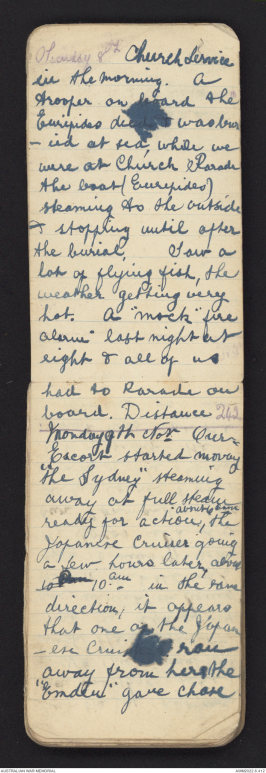 Sunday 8th Church Service
in the morning. A
trooper on board the
Euripides died & was bur
- ied at sea, while we
were at Church Parade
the boat (Euripides)
steaming to the outside
& stopping until after
the burial, Saw a
lot of flying fish, the
weather getting very
hot. A "mock" fire
alarm last night at
eight & all of us
had to Parade on
board. Distance 243
Monday 9th Nov Our
Escort started moving
"the Sydney" steaming
away at full steam
about 6 am
ready for action, the
Japanese Cruiser going
a few hours later, about
10 am in the same
direction, it appears
that one of the Japan
- ese ran
away from here the
"Emden" gave chase.
AUSTRALIAN WAR MEMORIAL